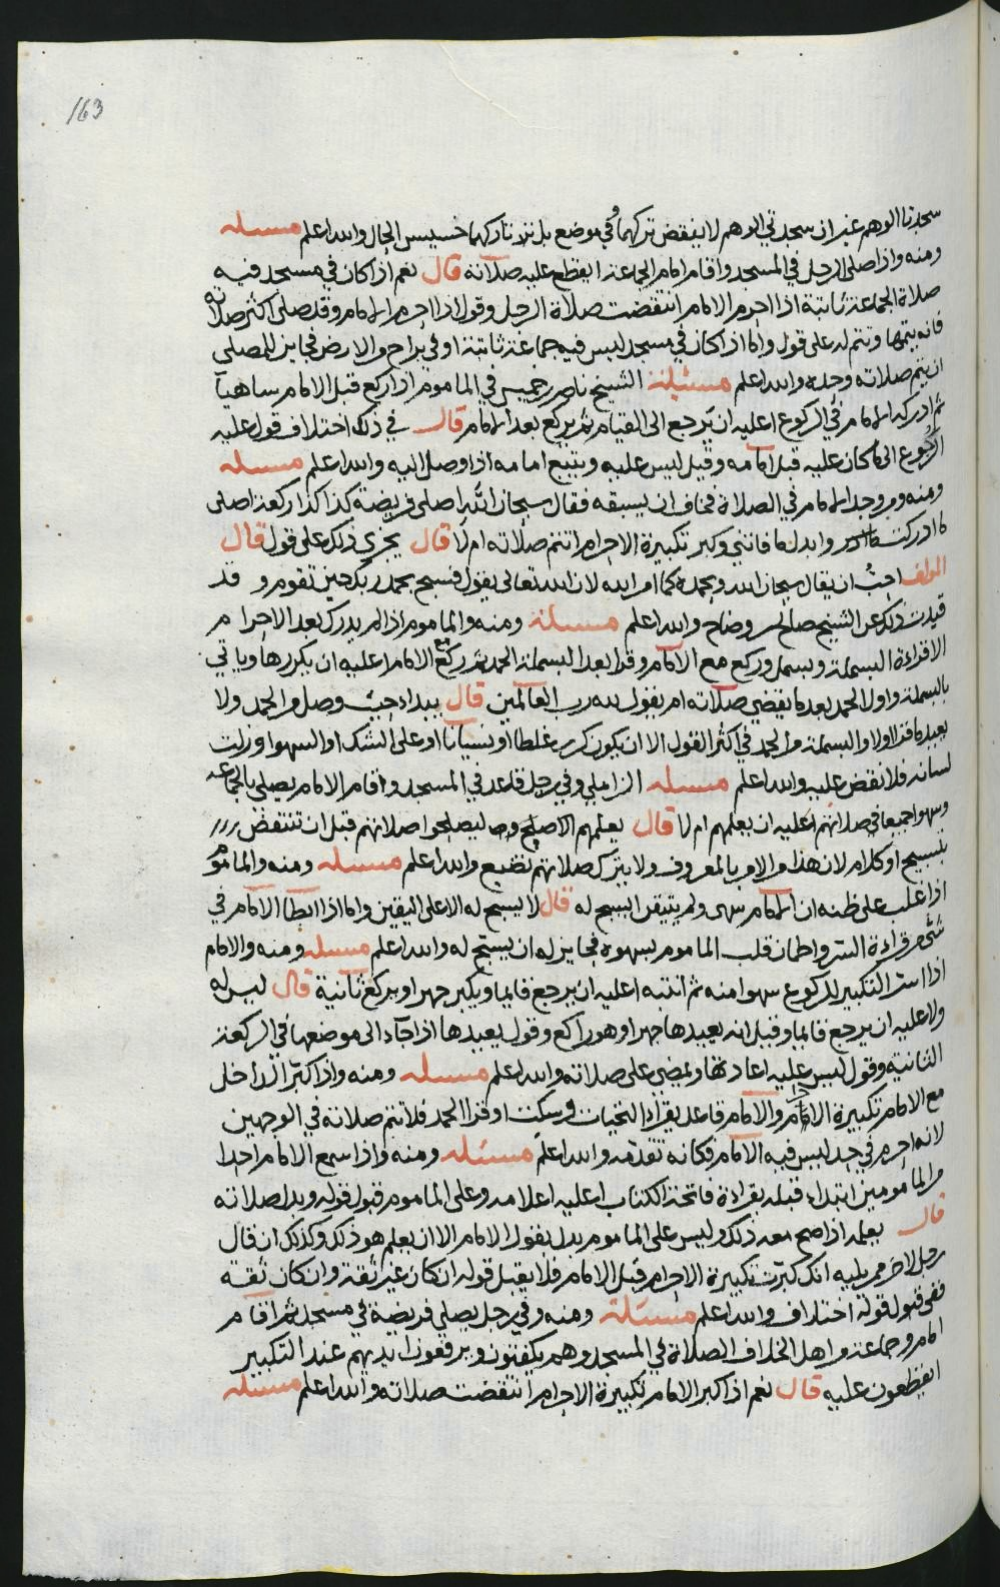 163
سجدتا الوهم غير ان سجدتي الوهم لا ينقض تركهما وفي موضع بل نرى تاركهما خسيس الحال والله اعلم مسئله
ومنه واذا صلى الرجل في المسجد واقام امام الجماعة ايقطع عليه صلاته قال نعم اذا كان في مسجد فيه
صلاة الجماعة ثابتة اذا احرم الامام انتقضت صلاة الرجل وقول اذا احرم الامام وقد صلى اكثر صلاته
فانه يتمها وتتم له على قول واما اذا كان في مسجد ليس فيه جماعة ثابتة او في براح من الارض فجايز للمصلي
ان يتم صلاته وحده والله اعلم مسئلة الشيخ ناصر بن خميس في الماموم اذا ركع قبل الامام ساهيا
ثم ادركه الامام في الركوع اعليه ان يرجع الى القيام ثم يركع بعد الامام قال في ذلك اختلاف قول عليه
الرجوع الى ما كان عليه قبل امامه وقيل ليس عليه ويتبع امامه اذا وصل اليه والله اعلم مسئله
ومنه ومن وجد الامام في الصلاة فخاف ان يسبقه فقال سبحان الله اصلي فريضة كذا كذا ركعة اصلي
ما ادركت وابدل ما فاتني وكبر تكبيرة الاحرام اتتم صلاته ام لا قال يجزي ذلك على قول قال
المولف احب ان يقال سبحان الله وبحمده كما امر الله لان الله تعالى يقول فسبح بحمد ربك حين تقوم وقد
قيدت ذلك عن الشيخ صالح بن وضاح والله اعلم مسئلة ومنه والماموم اذا لم يدرك بعد الاحرام
الا قراءة البسملة وبسمل وركع مع الامام وقرا بعد البسملة الحمد ثم ركع مع الامام اعليه ان يكررها وياتي
بالبسملة واول الحمد بعد ما يقضي صلاته ام يقول لله رب العالمين قال يبدا من حيث وصل من الحمد ولا
يعيد ما قرا اولا والبسملة من الحمد في اكثر القول الا ان يكون كرر غلطا او نسيانا او على الشك او السهو او زلت
لسانه فلا نقض عليه والله اعلم مسئله الزاملي وفي رجل قاعد في المسجد واقام الامام يصلي بالجماعة
وسهوا جميعا في صلاتهم اعليه ان يعلمهم ام لا قال يعلمهم الاصلح ليصلحوا صلاتهم قبل ان تنتقض
بتسبيح او كلام لان هذا من الامر بالمعروف ولا يترك صلاتهم تضيع والله اعلم مسئله ومنه والماموم
اذا غلب على ظنه ان الامام سهى ولم يتيقن ايسبح له قال لا يسبح له الا على اليقين واما اذا ابطا الامام في
شيء من قراءة السر واطمان قلب الماموم بسهوه فجايز له ان يسبح له والله اعلم مسئله ومنه والامام
اذا اسر التكبير للركوع سهوا منه ثم انتبه اعليه ان يرجع قايما ويكبر جهرا ويركع ثانية قال ليس له
ولا عليه ان يرجع قايما وقيل انه يعيدها جهرا وهو راكع وقول يعيدها اذا جاء الى موضعها في الركعة
الثانية وقول ليس عليه اعادتها ويمضي على صلاته والله اعلم مسئله ومنه واذا كبر الداخل
مع الامام تكبيرة الاحرام والامام قاعد يقرا التحيات وسكت او قرا الحمد فلا تتم صلاته في الوجهين
لانه احرم في حد ليس فيه الامام فكانه تقدمه والله اعلم مسئله ومنه واذا سمع الامام احدا
من المامومين ابتداء قبله بقراءة فاتحة الكتاب اعليه اعلامه وعلى الماموم قبول قوله وبدل صلاته
قال يعلمه اذا صح معه ذلك وليس على الماموم بدل بقول الامام الا ان يعلم هو ذلك وكذلك ان قال
رجل لاخر ممن يليه انك كبرت تكبيرة الاحرام قبل الامام فلا يقبل قوله ان كان غير ثقة وان كان ثقة
ففي قبول قوله اختلاف والله اعلم مسئلة ومنه وفي رجل يصلي فريضة في مسجد ثم اقام
امام وجماعة من اهل الخلاف الصلاة في المسجد وهم يكفتون ويرفعون ايديهم عند التكبير
ايقطعون عليه قال نعم اذا كبر الامام تكبيرة الاحرام انتقضت صلاته والله اعلم مسئله